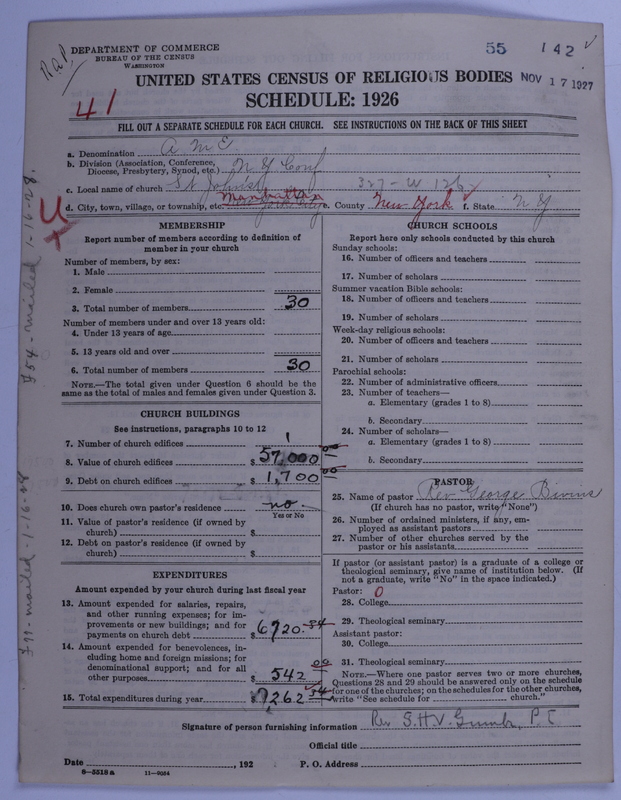 R.a.P.
DEPARTMENT OF COMMERCE
BUREAU OF THE CENSUS
WASHINGTON
55 142 ✓
UNITED STATES CENSUS OF RELIGIOUS BODIES
NOV 17 1927
SCHEDULE: 1926
41
FILL OUT A SEPARATE SCHEDULE FOR EACH CHURCH. SEE INSTRUCTIONS ON THE BACK OF THIS SHEET
a. Denomination A M E
b. Division (Association, Conference, Diocese, Presbytery, Synod, etc.) N Y Conf
c. Local name of church St Johns 327-W 126
d. City, town, village, or township, etc. Manhattan e. County New York f. State N Y
MEMBERSHIP
Report number of members according to definition of
member in your church
Number of members, by sex:
1. Male
2. Female
3. Total number of members 30
Number of members under and over 13 years old:
4. Under 13 years of age
5. 13 years old and over
6. Total number of members 30
NOTE.—The total given under Question 6 should be the
same as the total of males and females given under Question 3.
CHURCH BUILDINGS
See instructions, paragraphs 10 to 12
7. Number of church edifices 1
8. Value of church edifices $ 57,000
9. Debt on church edifices $ 1,700
10. Does church own pastor's residence no
Yes or No
11. Value of pastor's residence (if owned by
church) $
12. Debt on pastor's residence (if owned by
church) $
EXPENDITURES
Amount expended by your church during last fiscal year
13. Amount expended for salaries, repairs,
and other running expenses; for im-
provements or new buildings; and for
payments on church debt $ 6720.34
14. Amount expended for benevolences, in-
cluding home and foreign missions; for
denominational support; and for all
other purposes $ 542 00
15. Total expenditures during year $ 7262 34
CHURCH SCHOOLS
Report here only schools conducted by this church
Sunday schools:
16. Number of officers and teachers
17. Number of scholars
Summer vacation Bible schools:
18. Number of officers and teachers
19. Number of scholars
Week-day religious schools:
20. Number of officers and teachers
21. Number of scholars
Parochial schools:
22. Number of administrative officers
23. Number of teachers—
a. Elementary (grades 1 to 8)
b. Secondary
24. Number of scholars—
a. Elementary (grades 1 to 8)
b. Secondary
PASTOR
25. Name of pastor Rev George Bivins
(If church has no pastor, write "None")
26. Number of ordained ministers, if any, em-
ployed as assistant pastors
27. Number of other churches served by the
pastor or his assistants
If pastor (or assistant pastor) is a graduate of a college or
theological seminary, give name of institution below. (If
not a graduate, write "No" in the space indicated.)
Pastor: 0
28. College
29. Theological seminary
Assistant pastor:
30. College
31. Theological seminary
NOTE.—Where one pastor serves two or more churches,
Questions 28 and 29 should be answered only on the schedule
for one of the churches; on the schedules for the other churches,
write "See schedule for church."
Signature of person furnishing information Rev S.H.V.
Official title
Date , 192 P. O. Address
6—5518 a 11—9054
F54-mailed 1-16-28.
F99-mailed-1-16-28